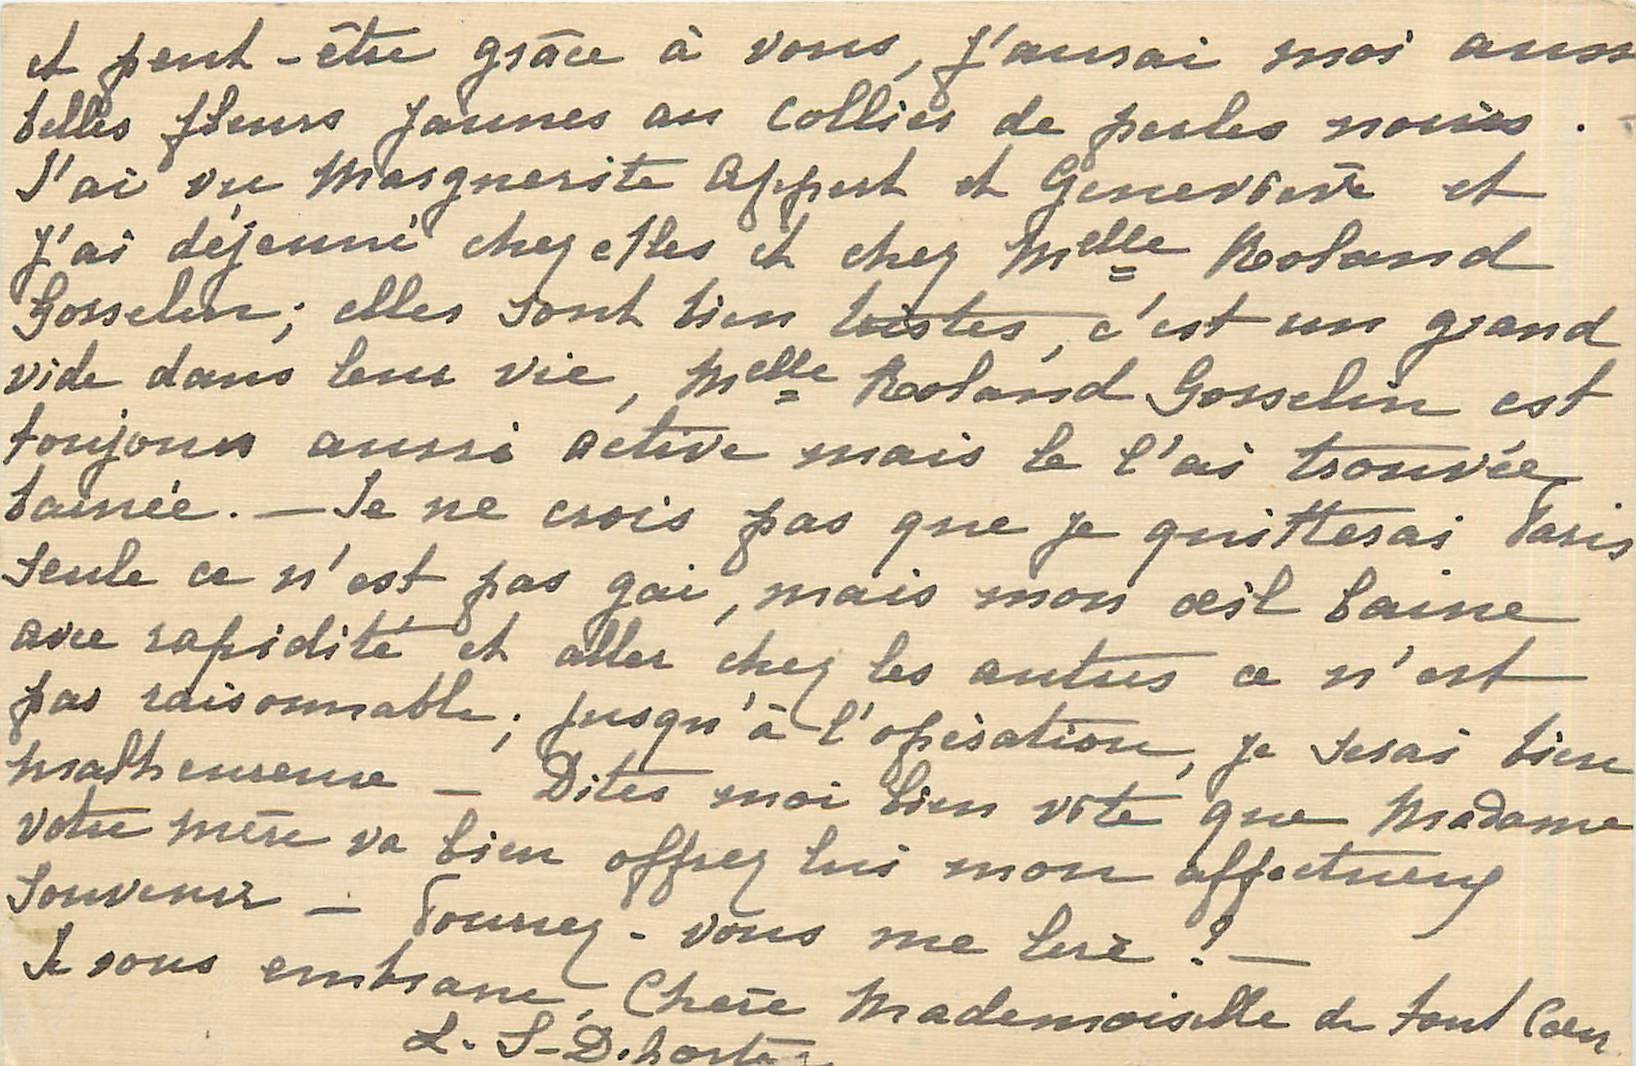 et peut-être grâce à vous, j'aurai moi auss
belles fleurs jaunes au collier de perles noires.
J'ai vu Marguerite Appert et Geneviève et
j'ai déjeuné chez elles et chez Melle Roland
Gosselin; elles sont bien tristes, c'est un grand
vide dans leur vie, Melle Roland Gosselin est
toujours aussi active mais le l'ai trouvée
baissée. — Je ne crois pas que je quitterai Paris
seule ce n'est pas gai, mais mon œil baisse
avec rapidité et aller chez les autres ce n'est
pas raisonnable; jusqu'à l'opération, je serai bien
malheureuse — Dites moi bien vite que Madame
votre mère va bien offrez lui mon affectueux
souvenir — Pourrez-vous me lire? —
Je vous embrasse, Chère Mademoiselle de tout Cœur
L. S-D.